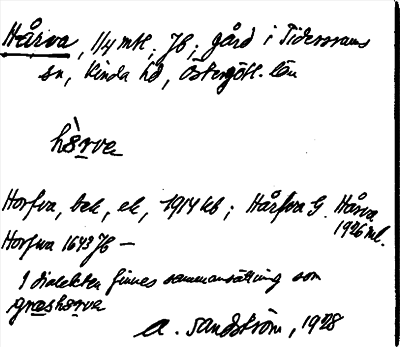 Hårva, 1/4 mtl. Jb; gård i Tidersrums
sn, Kinda hd, Östergötl. län
hå̀rva
Horfva, bek, ek, 1914 kb; Hårfva G. Hårva
1926 ml.
Horfwa 1643 Jb —
I dialekten finnes sammansättning som
græshårva
A. Sandström, 1928